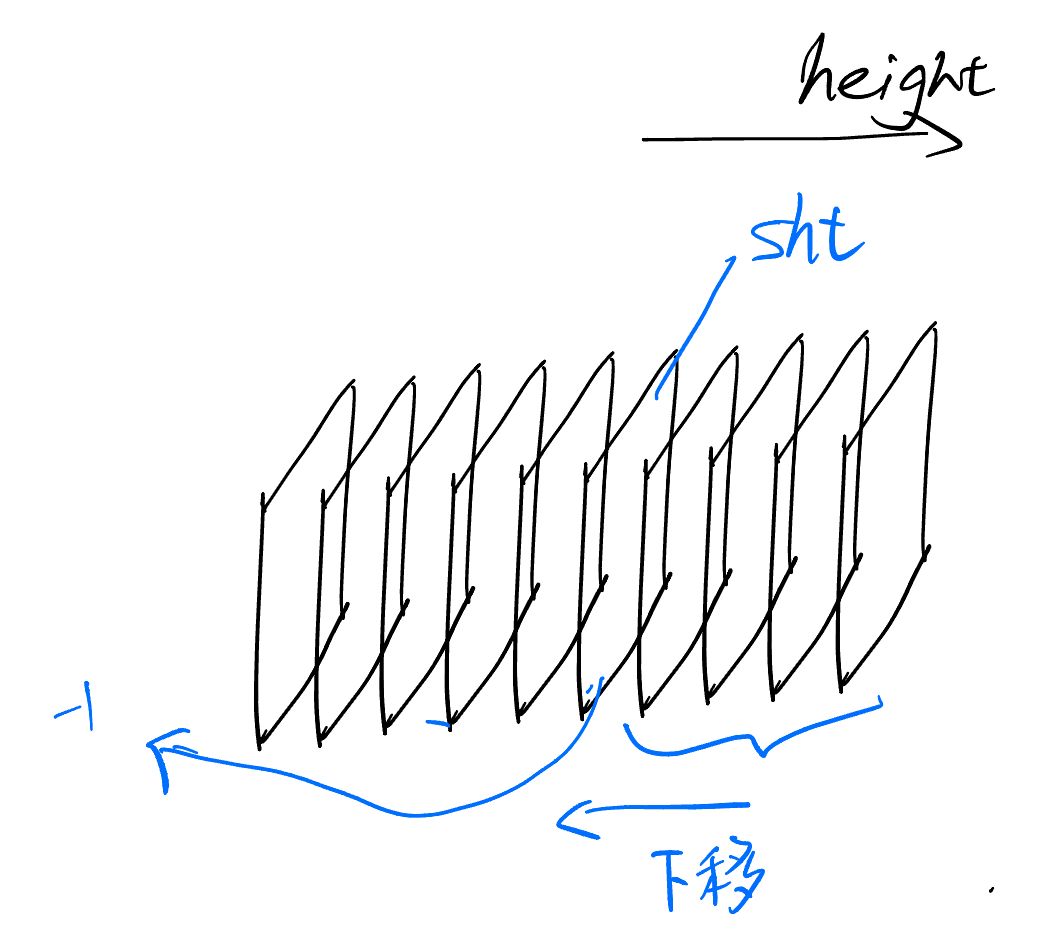 height
sht
-1
下移